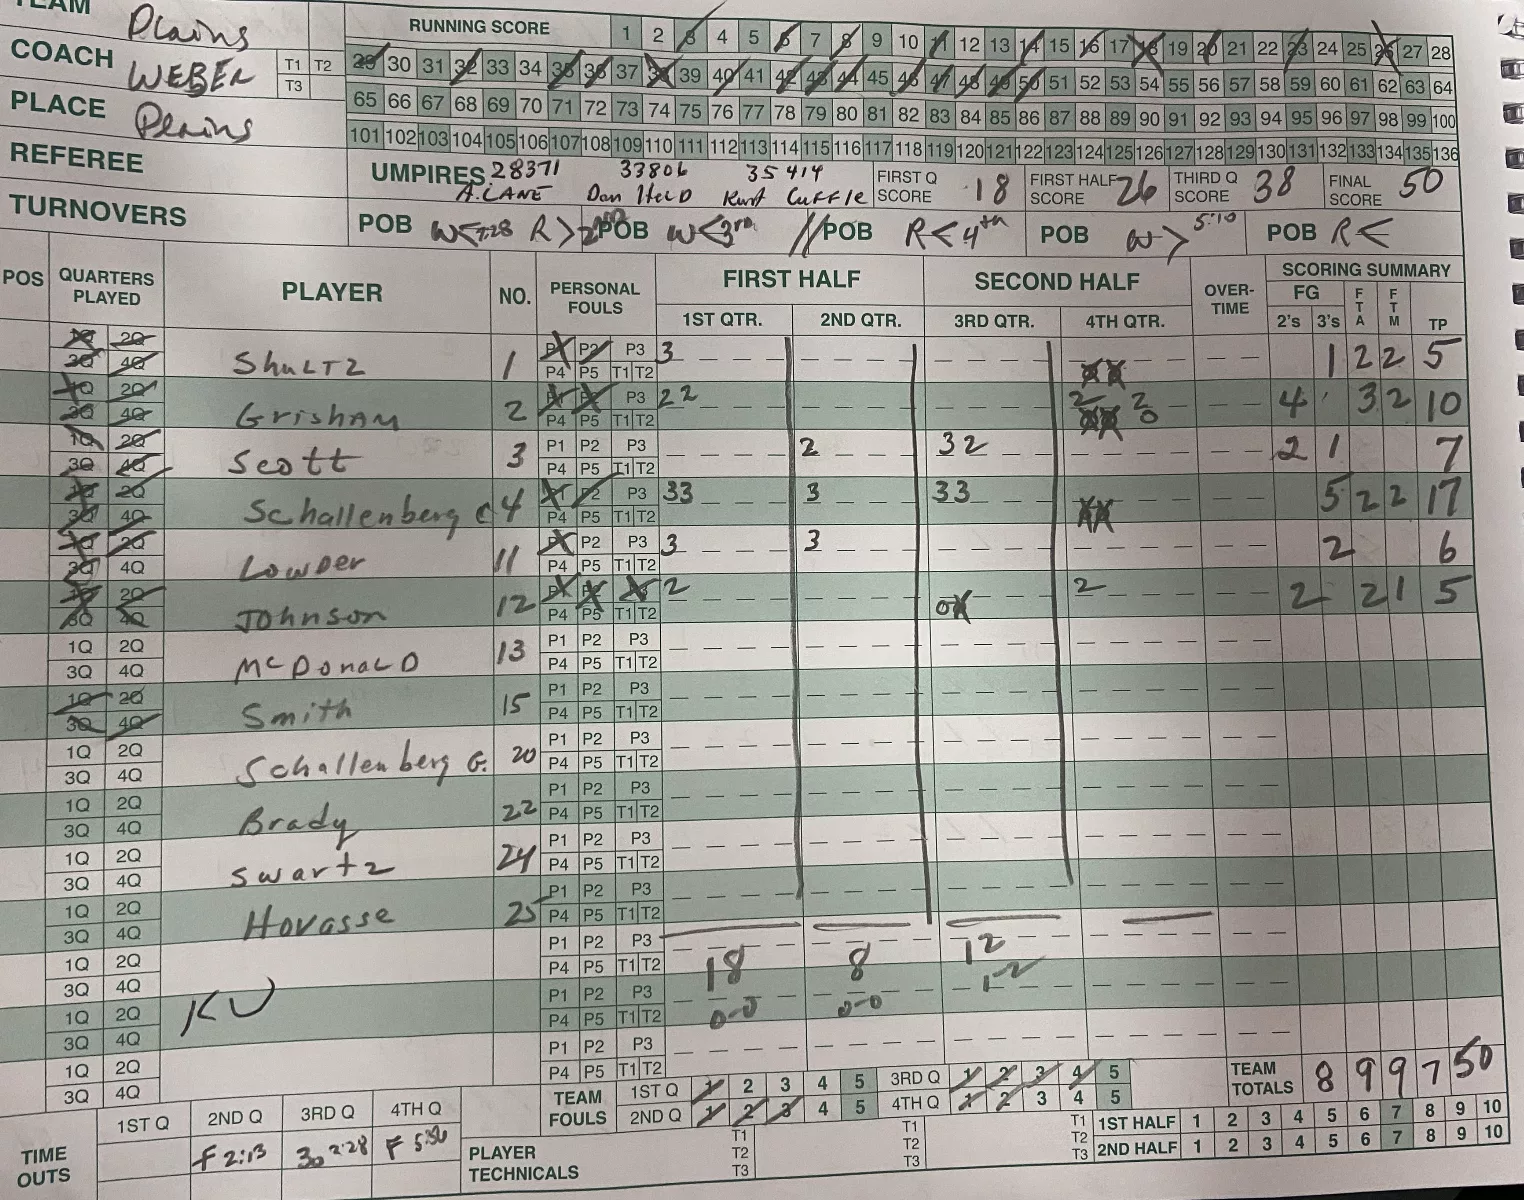 TEAM Plains
COACH WEBER T1 T2 T3
PLACE Plains
REFEREE
TURNOVERS
RUNNING SCORE 1 2 3 4 5 6 7 8 9 10 11 12 13 14 15 16 17 18 19 20 21 22 23 24 25 26 27 28
29 30 31 32 33 34 35 36 37 38 39 40 41 42 43 44 45 46 47 48 49 50 51 52 53 54 55 56 57 58 59 60 61 62 63 64
65 66 67 68 69 70 71 72 73 74 75 76 77 78 79 80 81 82 83 84 85 86 87 88 89 90 91 92 93 94 95 96 97 98 99 100
101 102 103 104 105 106 107 108 109 110 111 112 113 114 115 116 117 118 119 120 121 122 123 124 125 126 127 128 129 130 131 132 133 134 135 136
UMPIRES 28371 33806 35414
A. LANE Dan Held Kurt Cuffle
FIRST Q SCORE 18 FIRST HALF SCORE 26 THIRD Q SCORE 38 FINAL SCORE 50
POB W< 7:28 R> 2nd POB W< 3rd // POB R< 4th POB W> 5:10 POB R<
POS QUARTERS PLAYED PLAYER NO. PERSONAL FOULS FIRST HALF SECOND HALF OVER-TIME SCORING SUMMARY
1ST QTR. 2ND QTR. 3RD QTR. 4TH QTR. FG 2's 3's FTA FTM TP
1Q 2Q 3Q 4Q Shultz 1 P1 P2 P3 P4 P5 T1 T2 3 1 2 2 5
1Q 2Q 3Q 4Q Grisham 2 P3 P4 P5 T1 T2 2 2 2 2 0 4 3 2 10
1Q 2Q 3Q 4Q Scott 3 P1 P2 P3 P4 P5 T1 T2 2 3 2 2 1 7
1Q 2Q 3Q 4Q Schallenberg C 4 P1 P2 P3 P4 P5 T1 T2 3 3 3 3 3 5 2 2 17
1Q 2Q 3Q 4Q Lowder 11 P1 P2 P3 P4 P5 T1 T2 3 3 2 6
1Q 2Q 3Q 4Q Johnson 12 P4 P5 T1 T2 2 0X 2 2 2 1 5
1Q 2Q 3Q 4Q McDonald 13 P1 P2 P3 P4 P5 T1 T2
1Q 2Q 3Q 4Q Smith 15 P1 P2 P3 P4 P5 T1 T2
1Q 2Q 3Q 4Q Schallenberg G. 20 P1 P2 P3 P4 P5 T1 T2
1Q 2Q 3Q 4Q Brady 22 P1 P2 P3 P4 P5 T1 T2
1Q 2Q 3Q 4Q Swartz 24 P1 P2 P3 P4 P5 T1 T2
1Q 2Q 3Q 4Q Hovasse 25 P1 P2 P3 P4 P5 T1 T2
1Q 2Q 3Q 4Q P1 P2 P3 P4 P5 T1 T2 18 8 12
1Q 2Q 3Q 4Q KU P1 P2 P3 P4 P5 T1 T2 0-0 0-0 1-2
1Q 2Q 3Q 4Q P1 P2 P3 P4 P5 T1 T2
TEAM TOTALS 8 9 9 7 50
TEAM FOULS 1ST Q 1 2 3 4 5 3RD Q 1 2 3 4 5
2ND Q 1 2 3 4 5 4TH Q 1 2 3 4 5
1ST HALF 1 2 3 4 5 6 7 8 9 10
2ND HALF 1 2 3 4 5 6 7 8 9 10
TIME OUTS 1ST Q 2ND Q 3RD Q 4TH Q
F 2:13 30 2:28 F 5:56
PLAYER TECHNICALS T1 T2 T3 T1 T2 T3 T1 T2 T3